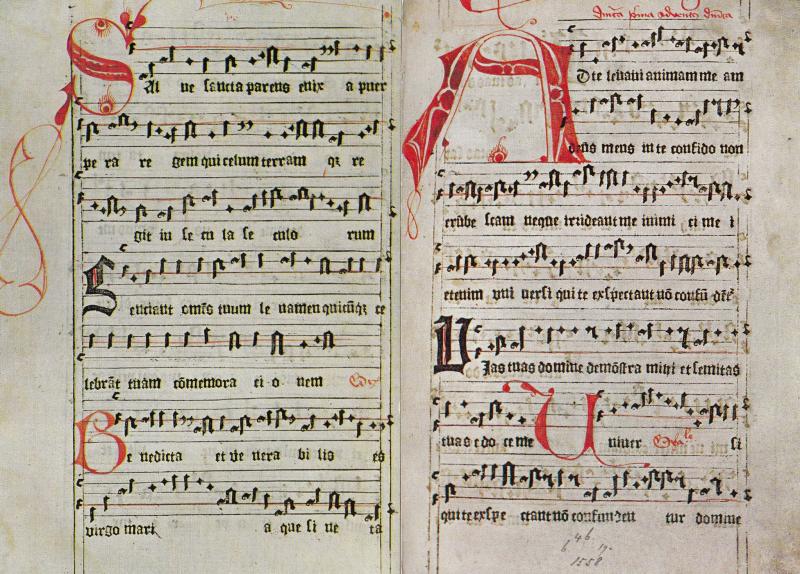 Sal ve sancta parens enix a puer
pe ra re gem qui celum terram qȝ re
git in se cu la se culo rum
Senciant om̄s tuum le uamen quicūqȝ ce
lebrāt tuam cōmemora ci o nem
Be nedicta et ve nera bi lis es
virgo mari a que si ne ta
Ad te leuaui animam me am
deus meus in te confido non
erube scam neque irrideant me inimi ci me i
etenim vni uersi qui te exspectant nō confū
Uias tuas domine demōstra mihi et semitas
tuas e do ce me Uniuer si
qui te exspe ctant nō confunden tur domine
1558